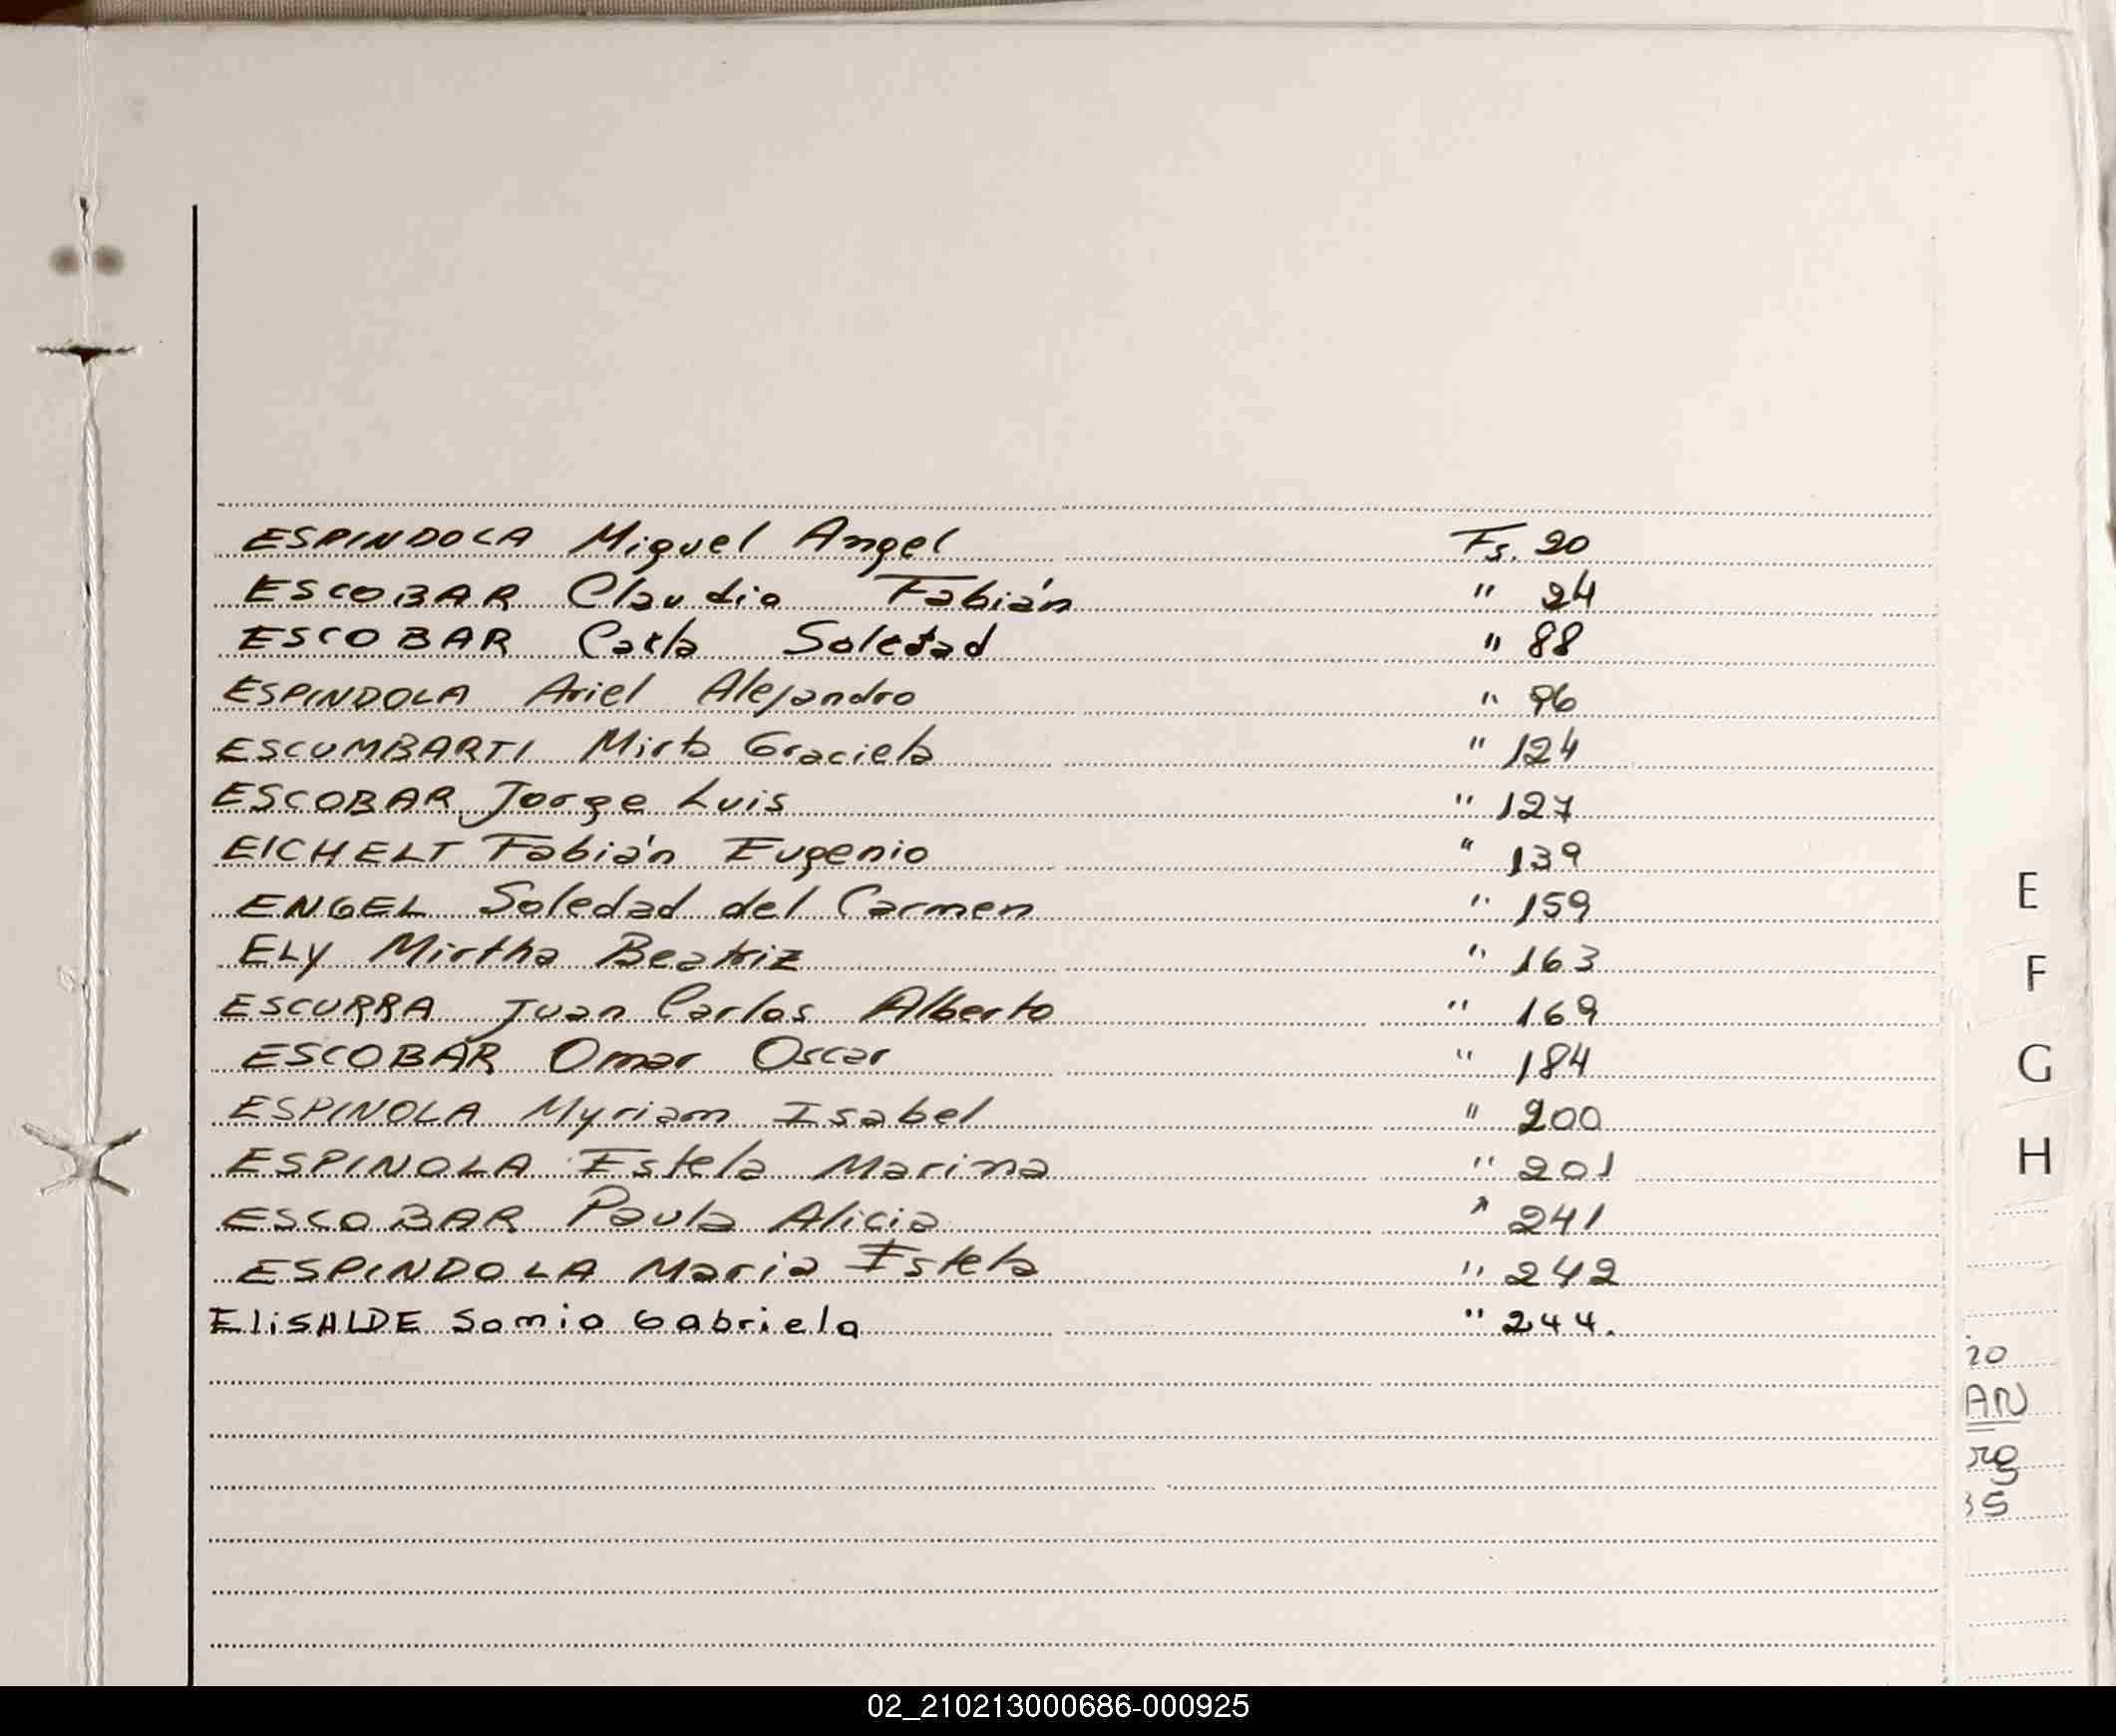 ESPINDOLA Miguel Angel Fs. 20
ESCOBAR Claudio Fabián " 24
ESCOBAR Carla Soledad " 88
ESPINDOLA Ariel Alejandro " 96
ESCUMBARTI Mirta Graciela " 124
ESCOBAR Jorge Luis " 127
EICHELT Fabián Eugenio " 139
ENGEL Soledad del Carmen " 159
ELY Mirtha Beatriz " 163
ESCURRA Juan Carlos Alberto " 169
ESCOBAR Omar Oscar " 184
ESPINOLA Myriam Isabel " 200
ESPINOLA Estela Marina " 201
ESCOBAR Paula Alicia " 241
ESPINDOLA Maria Estela " 242
ELiSALDE Sonia Gabriela " 244.
E
F
G
H
20
AN
35
02_210213000686-000925